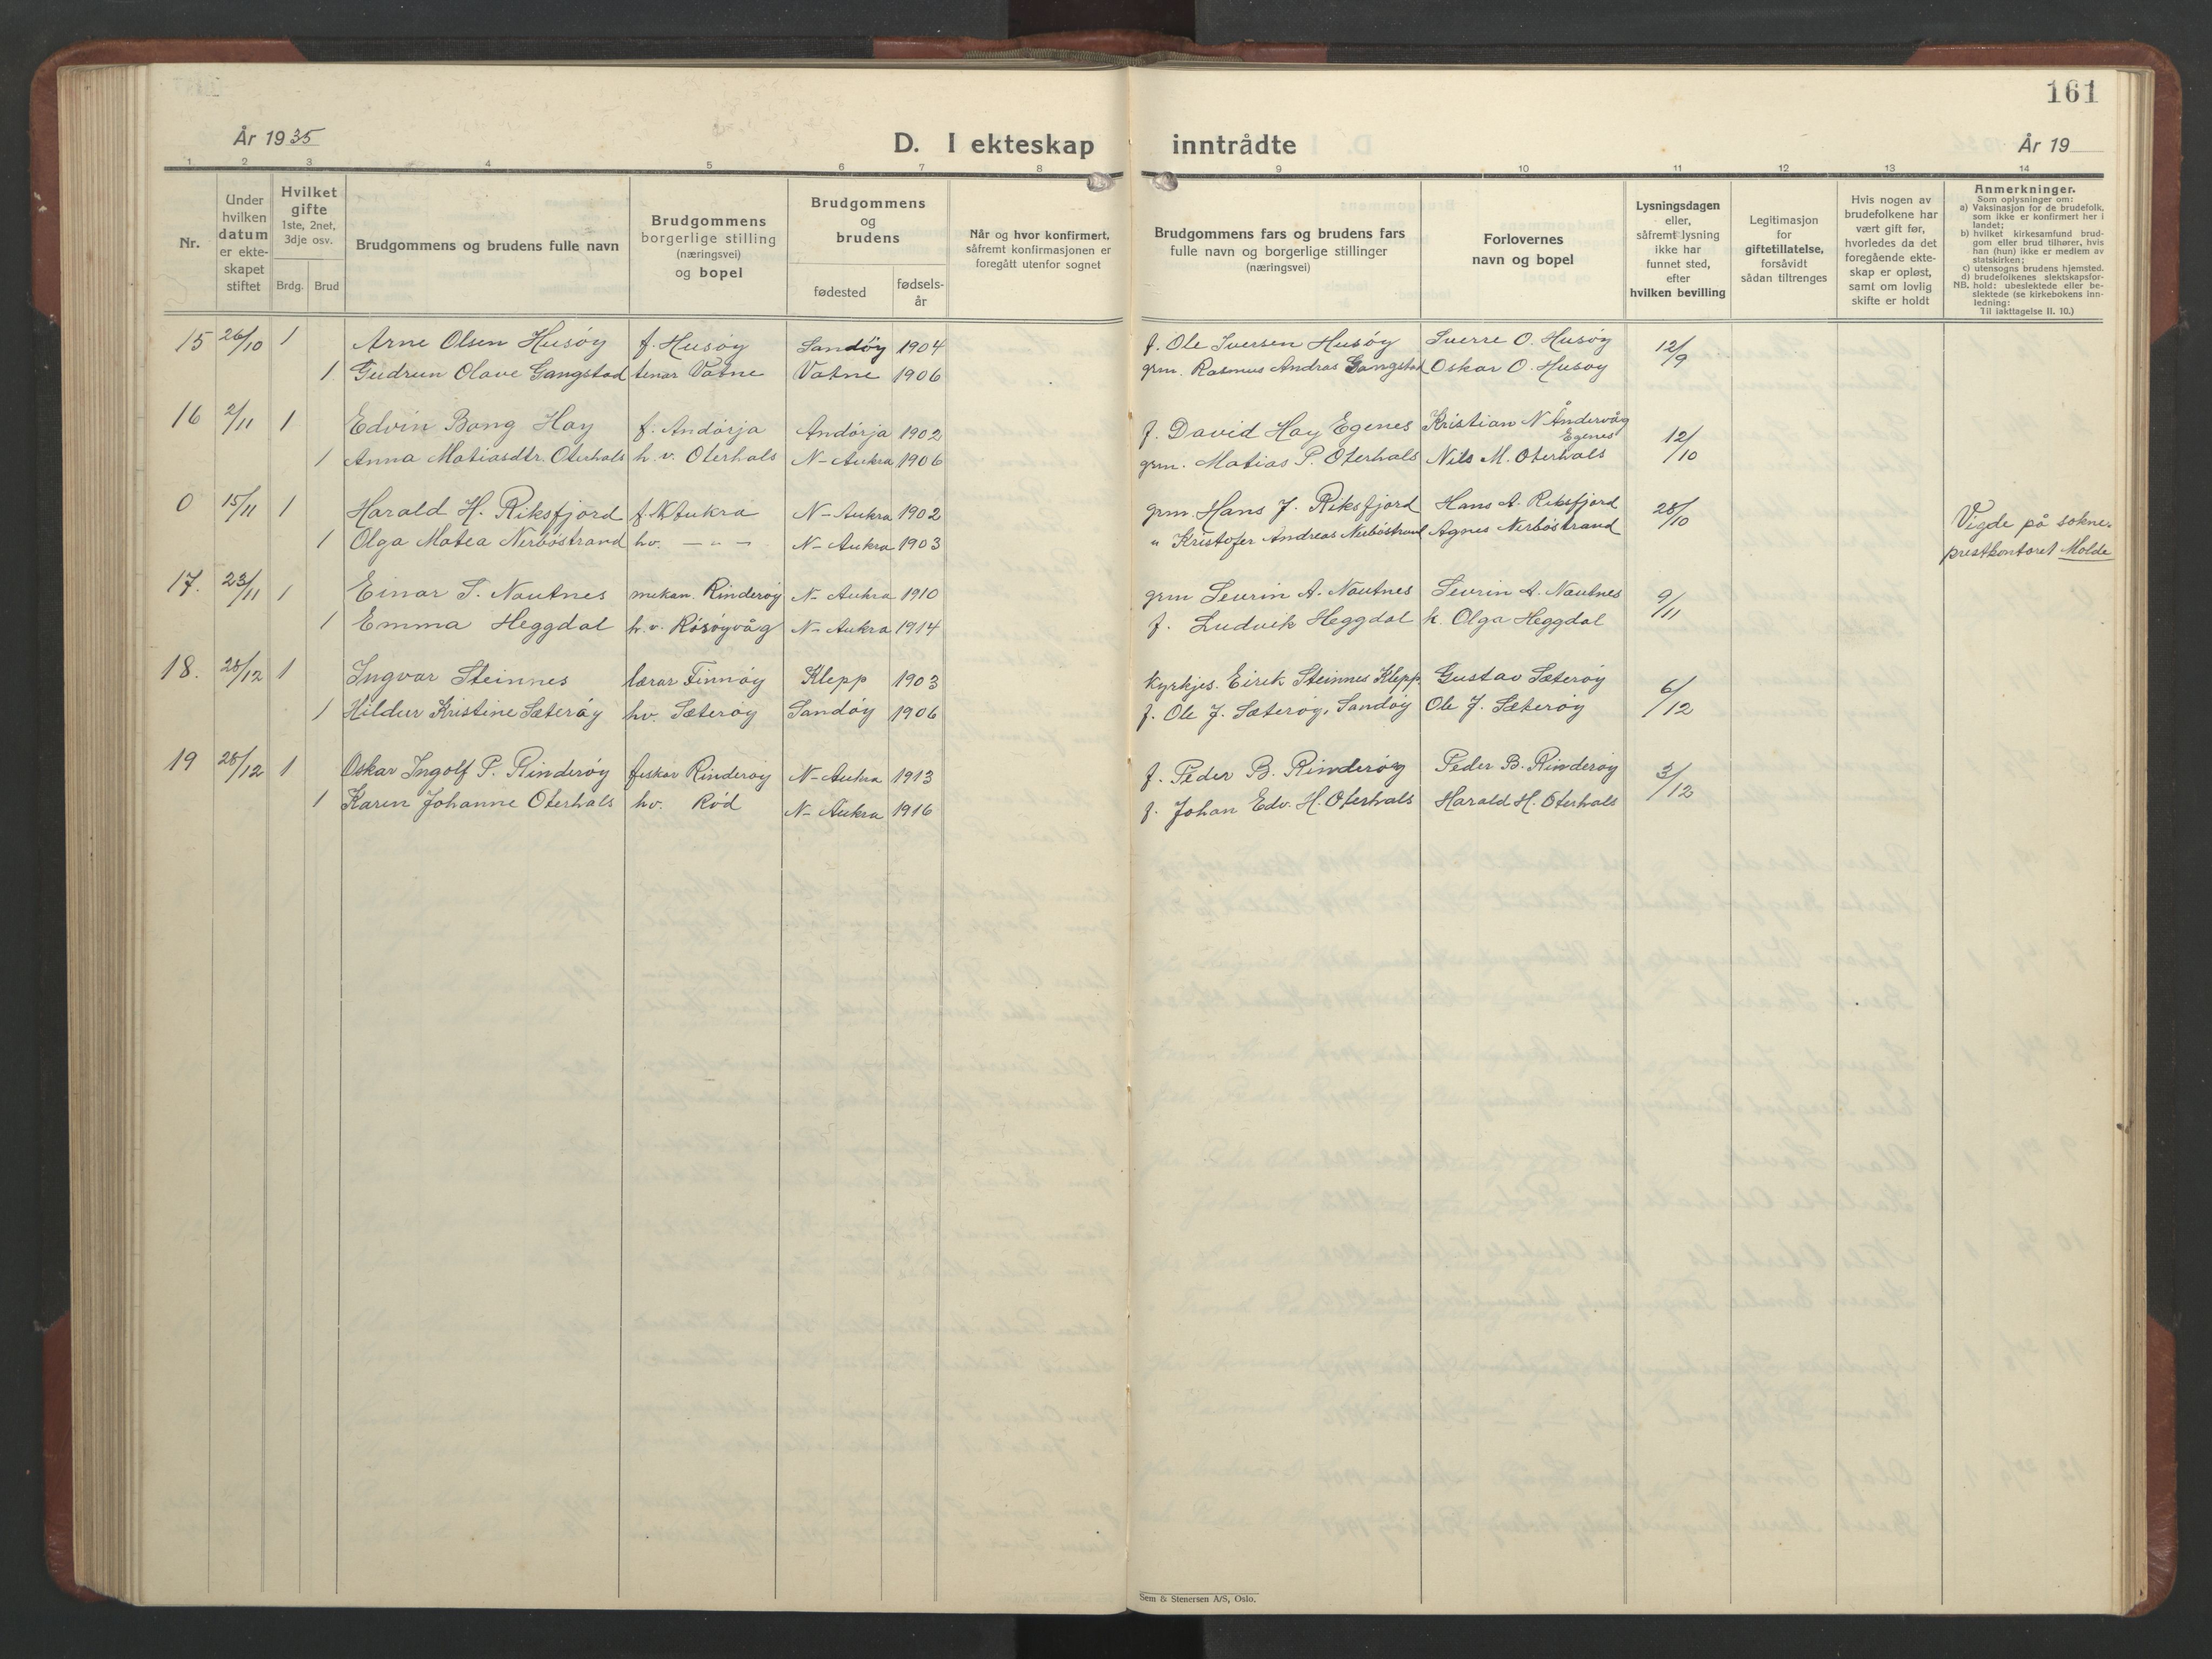 161
År 1935
D. I ekteskap inntrådte
År 19
1 2 3 4 5 6 7 8 9 10 11 12 13 14
Nr.
Under hvilken datum er ekte-skapet stiftet
Hvilket gifte 1ste, 2net, 3dje osv.
Brdg. Brud
Brudgommens og brudens fulle navn
Brudgommens borgerlige stilling (næringsvei) og bopel
Brudgommens og brudens
fødested
fødsels-år
Når og hvor konfirmert, såfremt konfirmasjonen er foregått utenfor sognet
Brudgommens fars og brudens fars fulle navn og borgerlige stillinger (næringsvei)
Forlovernes navn og bopel
Lysningsdagen eller, såfremt lysning ikke har funnet sted, efter hvilken bevilling
Legitimasjon for giftetillatelse, forsåvidt sådan tiltrenges
Hvis nogen av brudefolkene har vært gift før, hvorledes da det foregående ekte-skap er opløst, samt om lovlig skifte er holdt
Anmerkninger.
Som oplysninger om:
a) Vaksinasjon for de brudefolk, som ikke er konfirmert her i landet;
b) hvilket kirkesamfund brud-gom eller brud tilhører, hvis han (hun) ikke er medlem av statskirken;
c) utensogns brudens hjemsted.
d) brudefolkenes slektskapsfor-hold: ubeslektede eller be-slektede (se kirkebokens inn-ledning:
NB.
Til iakttagelse II. 10.)
15 26/10 1 Arne Olsen Husøy f. Husøy Sandøy 1904 f. Ole Iversen Husøy Sverre O. Husøy 12/9
1 Gudrun Olave Gangstad tenar Vatne Vatne 1906 grm. Rasmus Andras Gangstad Oskar O. Husøy
16 2/11 1 Edvin Bang Hay f. Andørja Andørja 1902 f. David Hay Egenes Kristian N Åndervåg Egenes 12/10
1 Anna Matiasdtr. Oterhals h.v. Oterhals N-Aukra 1906 grm. Matias P. Oterhals Nils M. Oterhals
0 15/11 1 Harald H. Riksfjord f. N Aukra N-Aukra 1902 grm. Hans J. Riksfjord Hans A. Riksfjord 28/10 Vigde på sokne-
1 Olga Matea Nerbøstrand hv. — " — N-Aukra 1903 " Kristofer Andreas Nerbøstrand Agnes Nerbøstrand prestkontoret Molde
17. 23/11 1 Einar S. Nautnes mekan. Rinderøy N-Aukra 1910 grm Sevrin A. Nautnes Sevrin A. Nautnes 9/11
1 Emma Heggdal h.v. Røsøyvåg N-Aukra 1914 f. Ludvik Heggdal k. Olga Heggdal
18. 28/12 1 Ingvar Steinnes lærar Finnøy Klepp 1903 Kyrkjes. Eirik Steinnes Klepp Gustav Sæterøy 6/12
1 Hildur Kristine Sæterøy hv. Sæterøy Sandøy 1906 f. Ole J. Sæterøy, Sandøy Ole J. Sæterøy
19 28/12 1 Oskar Ingolf P. Rinderøy fiskar Rinderøy N-Aukra 1913 f. Peder B. Rinderøy Peder B. Rinderøy 3/12
1 Karen Johanne Oterhals hv. Rød N-Aukra 1916 f. Johan Edv. H. Oterhals Harald H. Oterhals
Sem & Stenersen A/S, Oslo.